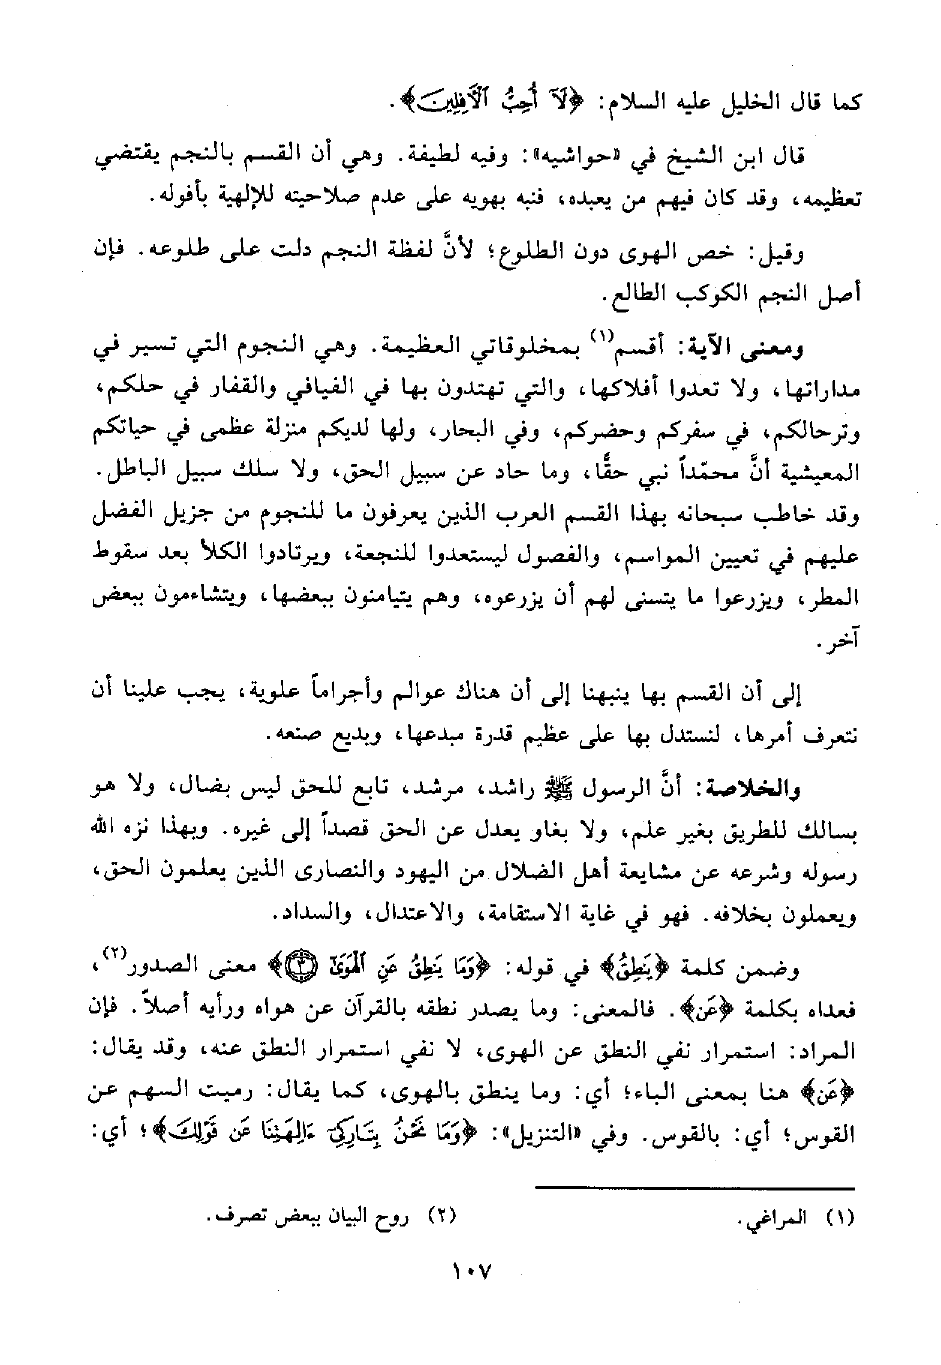 كما قال الخليل عليه السلام: ﴿لَآ أُحِبُّ ٱلْآفِلِينَ﴾.
قال ابن الشيخ في «حواشيه»: وفيه لطيفة. وهي أن القسم بالنجم يقتضي
تعظيمه، وقد كان فيهم من يعبده، فنبه بهويه على عدم صلاحيته للإلهية بأفوله.
وقيل: خص الهوى دون الطلوع؛ لأنَّ لفظة النجم دلت على طلوعه. فإن
أصل النجم الكوكب الطالع.
ومعنى الآية: أقسم(١) بمخلوقاتي العظيمة. وهي النجوم التي تسير في
مداراتها، ولا تعدوا أفلاكها، والتي تهتدون بها في الفيافي والقفار في حلكم،
وترحالكم، في سفركم وحضركم، وفي البحار، ولها لديكم منزلة عظمى في حياتكم
المعيشية أنَّ محمّداً نبي حقًّا، وما حاد عن سبيل الحق، ولا سلك سبيل الباطل.
وقد خاطب سبحانه بهذا القسم العرب الذين يعرفون ما للنجوم من جزيل الفضل
عليهم في تعيين المواسم، والفصول ليستعدوا للنجعة، ويرتادوا الكلأ بعد سقوط
المطر، ويزرعوا ما يتسنى لهم أن يزرعوه، وهم يتيامنون ببعضها، ويتشاءمون ببعض
آخر.
إلى أن القسم بها ينبهنا إلى أن هناك عوالم وأجراماً علوية، يجب علينا أن
نتعرف أمرها، لنستدل بها على عظيم قدرة مبدعها، وبديع صنعه.
والخلاصة: أنَّ الرسول ﷺ راشد، مرشد، تابع للحق ليس بضال، ولا هو
بسالك للطريق بغير علم، ولا بغاو يعدل عن الحق قصداً إلى غيره. وبهذا نزه الله
رسوله وشرعه عن مشايعة أهل الضلال من اليهود والنصارى الذين يعلمون الحق،
ويعملون بخلافه. فهو في غاية الاستقامة، والاعتدال، والسداد.
وضمن كلمة ﴿يَنطِقُ﴾ في قوله: ﴿وَمَا يَنطِقُ عَنِ ٱلْهَوَىٰٓ ۝٣﴾ معنى الصدور(٢)،
فعداه بكلمة ﴿عَن﴾. فالمعنى: وما يصدر نطقه بالقرآن عن هواه ورأيه أصلاً. فإن
المراد: استمرار نفي النطق عن الهوى، لا نفي استمرار النطق عنه، وقد يقال:
﴿عَن﴾ هنا بمعنى الباء؛ أي: وما ينطق بالهوى، كما يقال: رميت السهم عن
القوس؛ أي: بالقوس. وفي «التنزيل»: ﴿وَمَا نَحْنُ بِتَارِكِىٓ ءَالِهَتِنَا عَن قَوْلِكَ﴾؛ أي:
(١) المراغي.
(٢) روح البيان ببعض تصرف.
١٠٧